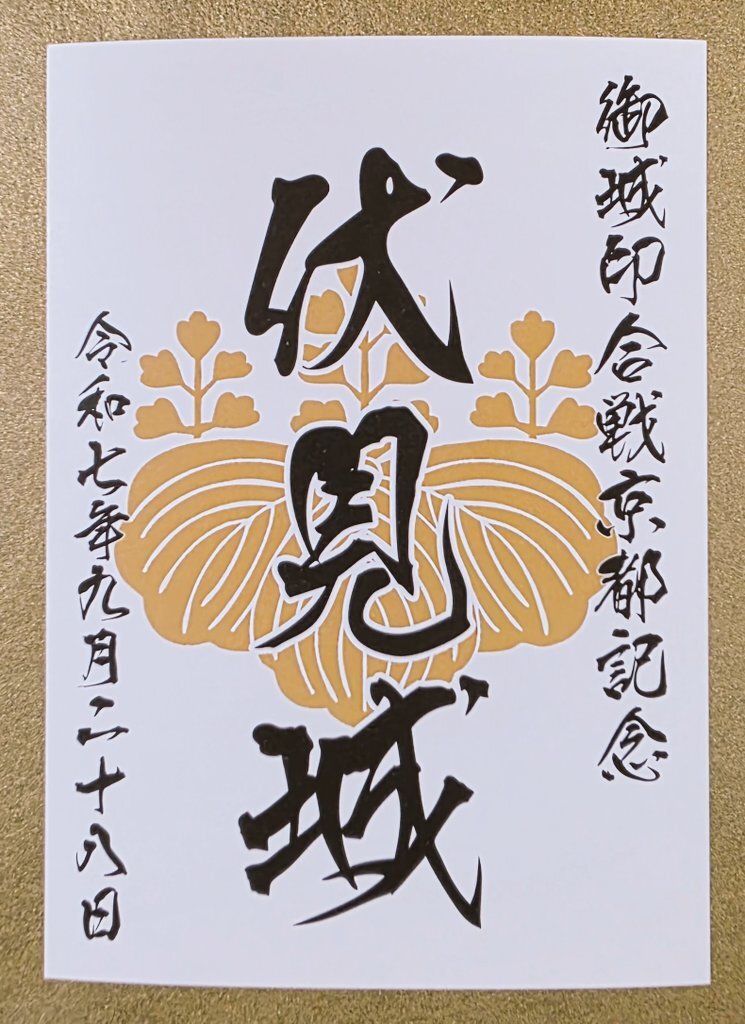 御城印合戦京都記念
伏見城
令和七年九月二十八日